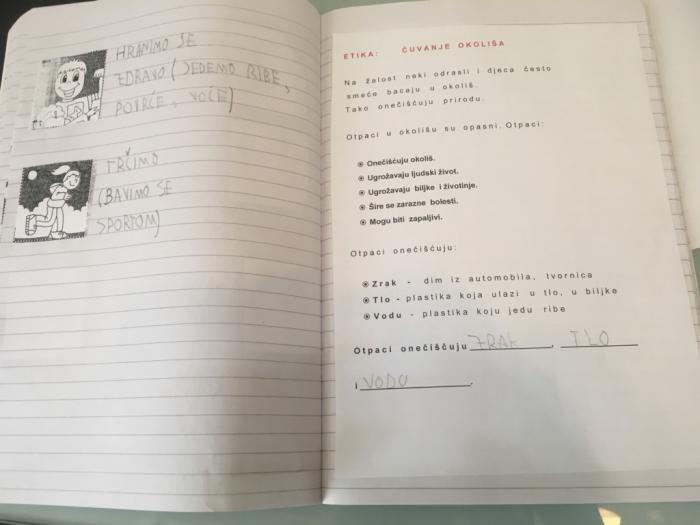 HRANIMO SE
ZDRAVO (JEDEMO RIBE,
POVRĆE, VOĆE)
TRČIMO
(BAVIMO SE
SPORTOM)
ETIKA: ČUVANJE OKOLIŠA
Na žalost neki odrasli i djeca često
smeće bacaju u okoliš.
Tako onečišćuju prirodu.
Otpaci u okolišu su opasni. Otpaci:
Onečišćuju okoliš.
Ugrožavaju ljudski život.
Ugrožavaju biljke i životinje.
Šire se zarazne bolesti.
Mogu biti zapaljivi.
Otpaci onečišćuju:
Zrak - dim iz automobila, tvornica
Tlo - plastika koja ulazi u tlo, u biljke
Vodu - plastika koju jedu ribe
Otpaci onečišćuju ZRAK, TLO
i VODU.